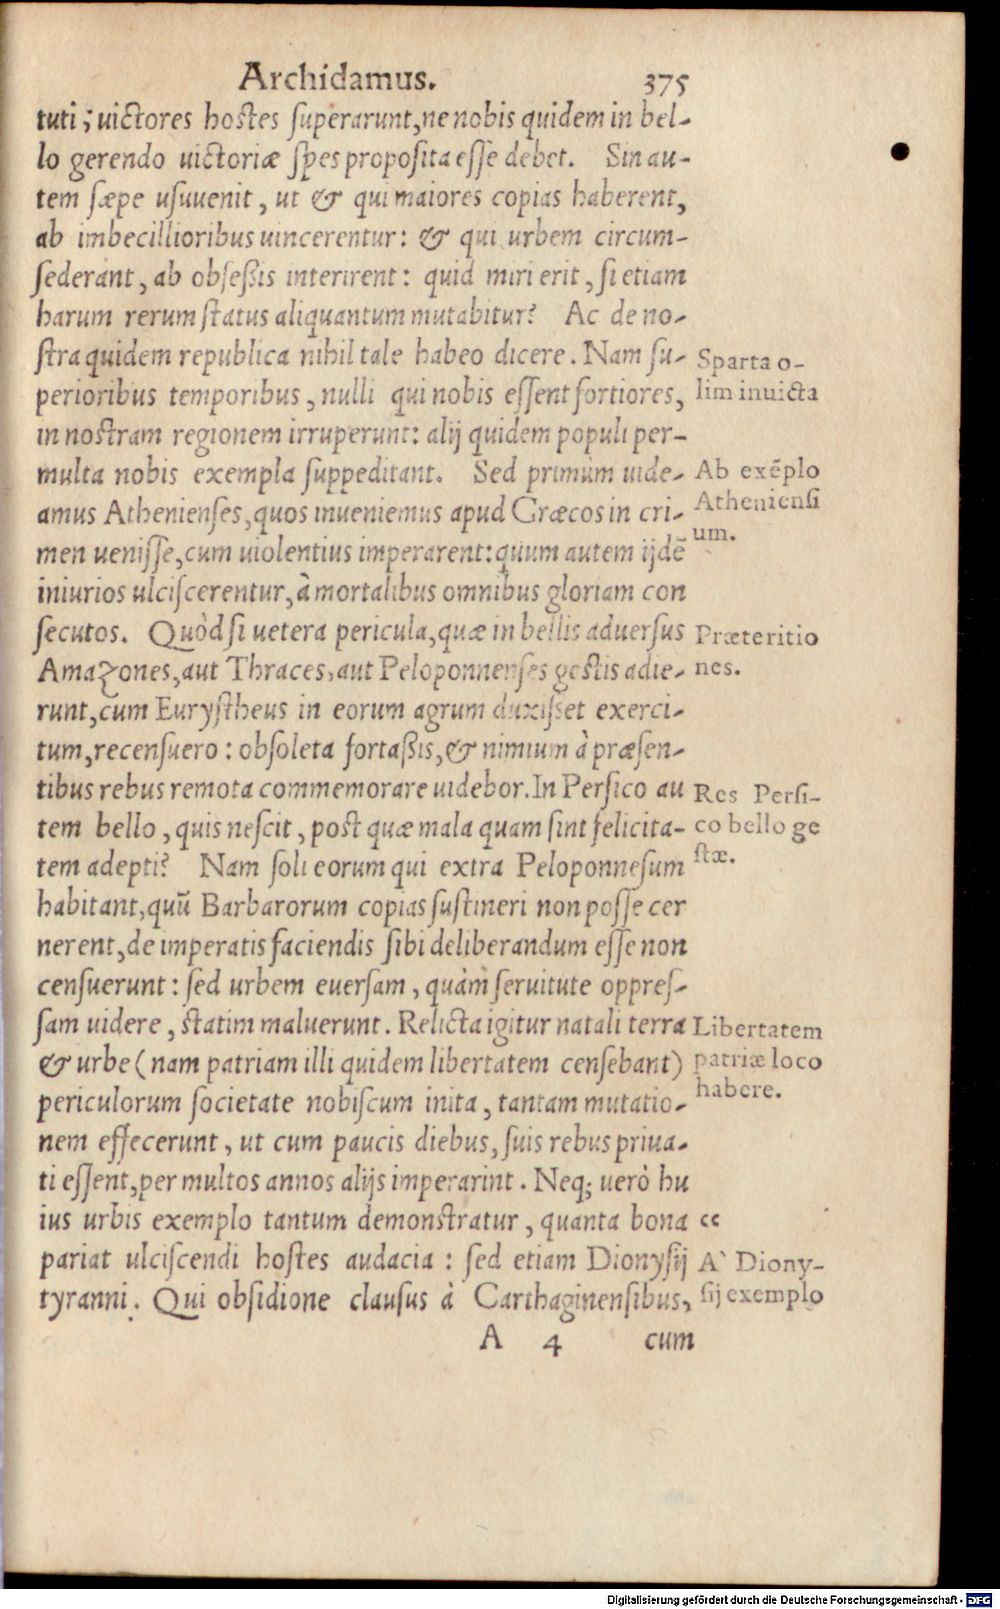 Archidamus. 375
tuti; uictores hostes ſuperarunt, ne nobis quidem in bel-
lo gerendo uictoriæ ſpes propoſita eſſe debet. Sin au-
tem ſæpe uſuuenit, ut & qui maiores copias haberent,
ab imbecillioribus uincerentur: & qui urbem circum-
ſederant, ab obſeßis interirent: quid miri erit, ſi etiam
harum rerum ſtatus aliquantum mutabitur? Ac de no-
ſtra quidem republica nihil tale habeo dicere. Nam ſu-
Sparta o-
perioribus temporibus, nulli qui nobis eſſent fortiores,
lim inuicta
in noſtram regionem irruperunt: alij quidem populi per-
multa nobis exempla ſuppeditant. Sed primùm uide-
Ab exẽplo
amus Athenienſes, quos inueniemus apud Græcos in cri-
Athenienſi
men ueniſſe, cum uiolentius imperarent: quum autem ijdẽ
um.
iniurios ulciſcerentur, à mortalibus omnibus gloriam con
ſecutos. Quòd ſi uetera pericula, quæ in bellis aduerſus
Præteritio
Amazones, aut Thraces, aut Peloponnenſes geſtis adie-
nes.
runt, cum Euryſtheus in eorum agrum duxiſſet exerci-
tum, recenſuero: obſoleta fortaßis, & nimium à præſen-
tibus rebus remota commemorare uidebor. In Perſico au
Res Perſi-
tem bello, quis neſcit, poſt quæ mala quam ſint felicita-
co bello ge
tem adepti? Nam ſoli eorum qui extra Peloponneſum
ſtæ.
habitant, quũ Barbarorum copias ſuſtineri non poſſe cer
nerent, de imperatis faciendis ſibi deliberandum eſſe non
cenſuerunt: ſed urbem euerſam, quàm ſeruitute oppreſ-
ſam uidere, ſtatim maluerunt. Relicta igitur natali terra
Libertatem
& urbe (nam patriam illi quidem libertatem cenſebant)
patriæ loco
periculorum ſocietate nobiſcum inita, tantam mutatio-
habere.
nem effecerunt, ut cum paucis diebus, ſuis rebus priua-
ti eſſent, per multos annos alijs imperarint. Neq; uerò hu
ius urbis exemplo tantum demonſtratur, quanta bona cc
pariat ulciſcendi hoſtes audacia: ſed etiam Dionyſij
A` Diony-
tyranni. Qui obſidione clauſus à Carthaginenſibus,
ſij exemplo
A 4 cum
Digitalisierung gefördert durch die Deutsche Forschungsgemeinschaft - DFG